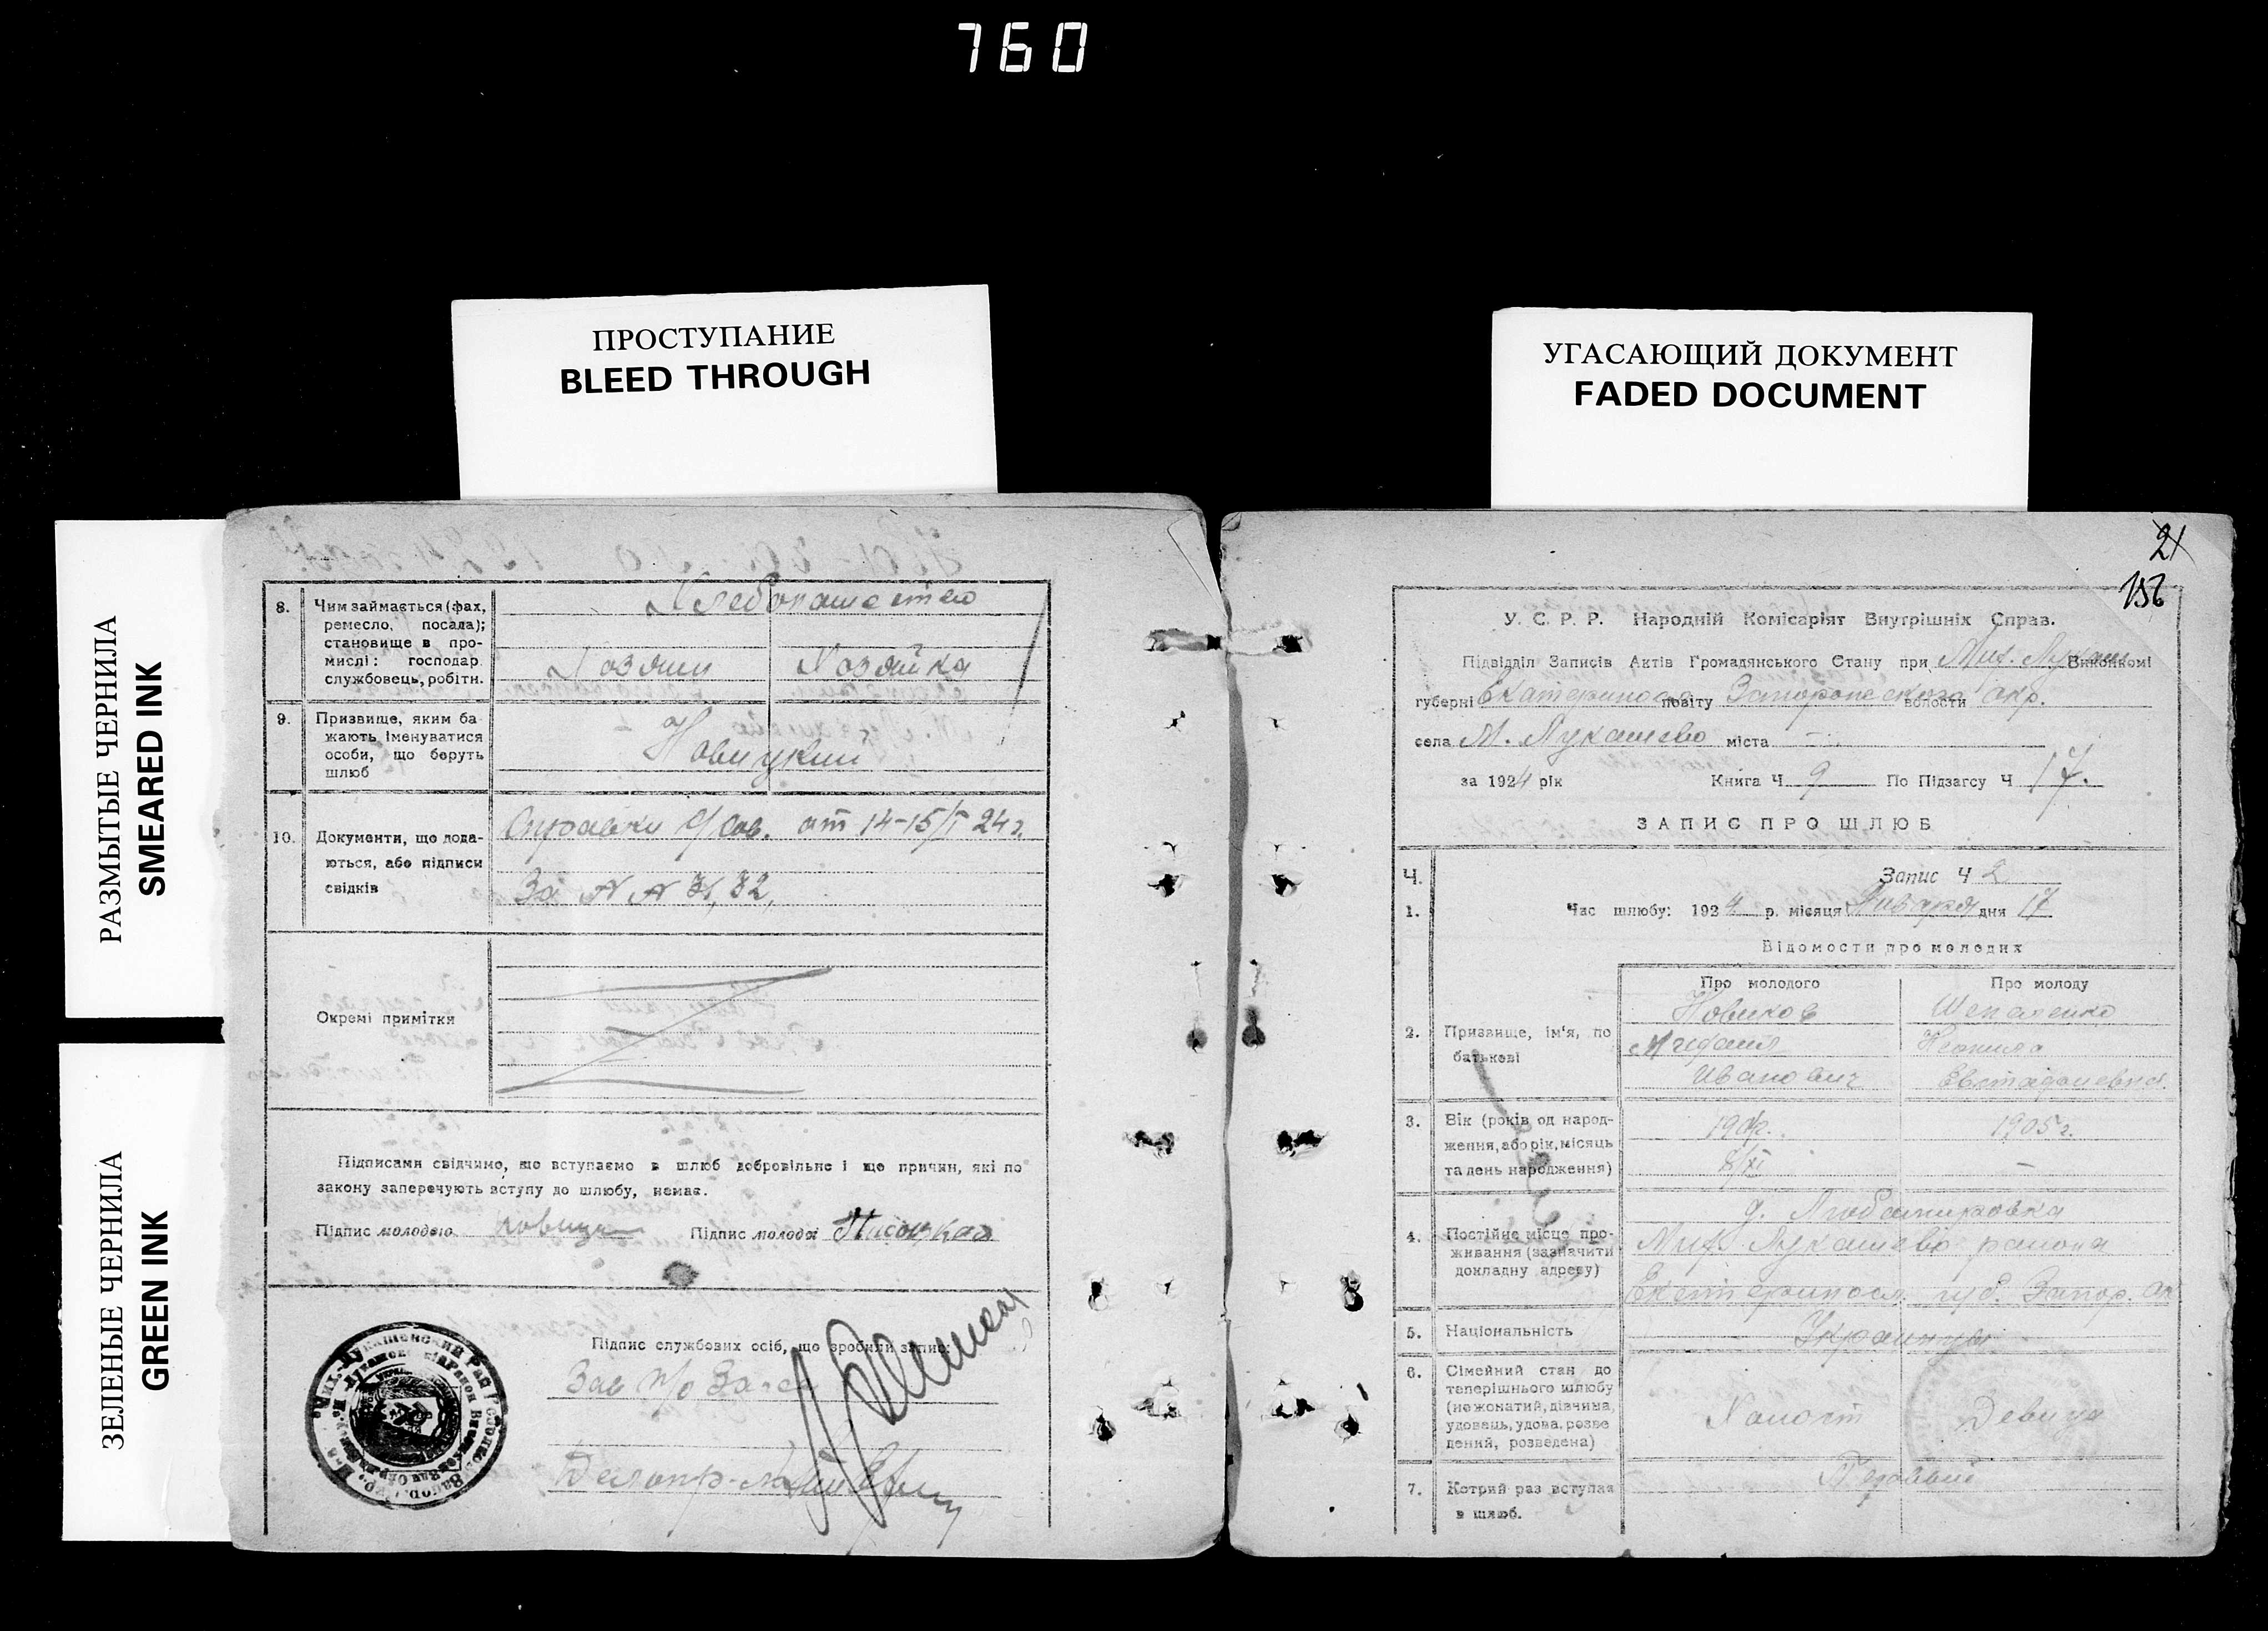 760
ПРОСТУПАНИЕ
BLEED THROUGH
УГАСАЮЩИЙ ДОКУМЕНТ
FADED DOCUMENT
РАЗМЫТЫЕ ЧЕРНИЛА
SMEARED INK
ЗЕЛЕНЫЕ ЧЕРНИЛА
GREEN INK
8. Чим займається (фах,
ремесло, посада);
становище в про-
мислі: господар
службовець, робітн.
Хлебопашество
Хозяин Хозяйка
9. Призвище, яким ба
жають іменуватися
особи, що беруть
шлюб
Новицкий
10. Документи, що дода-
ються, або підписи
свідків
Справки С/сов. от 14-15/I 24 г.
За N N 31, 32,
Окремі примітки
Підписами свідчимо, що вступаємо в шлюб добровільне і що причин, які по
закону заперечують вступу до шлюбу, немає.
Підпис молодого Підпис молодої
Підпис службових осіб, що зробили запис:
Зав п/о
21
156
У. С. Р. Р. Народній Комісаріят Внутрішніх Справ.
Підвідділ Записів Актів Громадянського Стану при Мих. Лукаш Виконкомі
губерні Екатеринос повіту Запорожского волости окр.
села М. Лукашево міста —
за 1924 рік Книга Ч 9 По Підзагсу Ч 17.
ЗАПИС ПРО ШЛЮБ
Ч. Запис Ч 2
1. Час шлюбу: 1924 р. місяця Января дня 17
Відомости про молодих
Про молодого Про молоду
2. Призвище, ім'я, по
батькові
Новиков
Иванович
Евстафиевна
3. Вік (років од народ-
ження, або рік, місяць
та день народження)
1905 г.
8/XI —
4. Постійне місце про-
живання (зазначити
докладну адресу)
Мих. Лукашево района
Екатеринос. губ. Запор. ок
5. Національність
Украинцы
6. Сімейний стан до
теперішнього шлюбу
(нежонатий, дівчина,
удовець, удова, розве
дений, розведена)
Холост Девица
7. Котрий раз вступає
в шлюб.
Первый